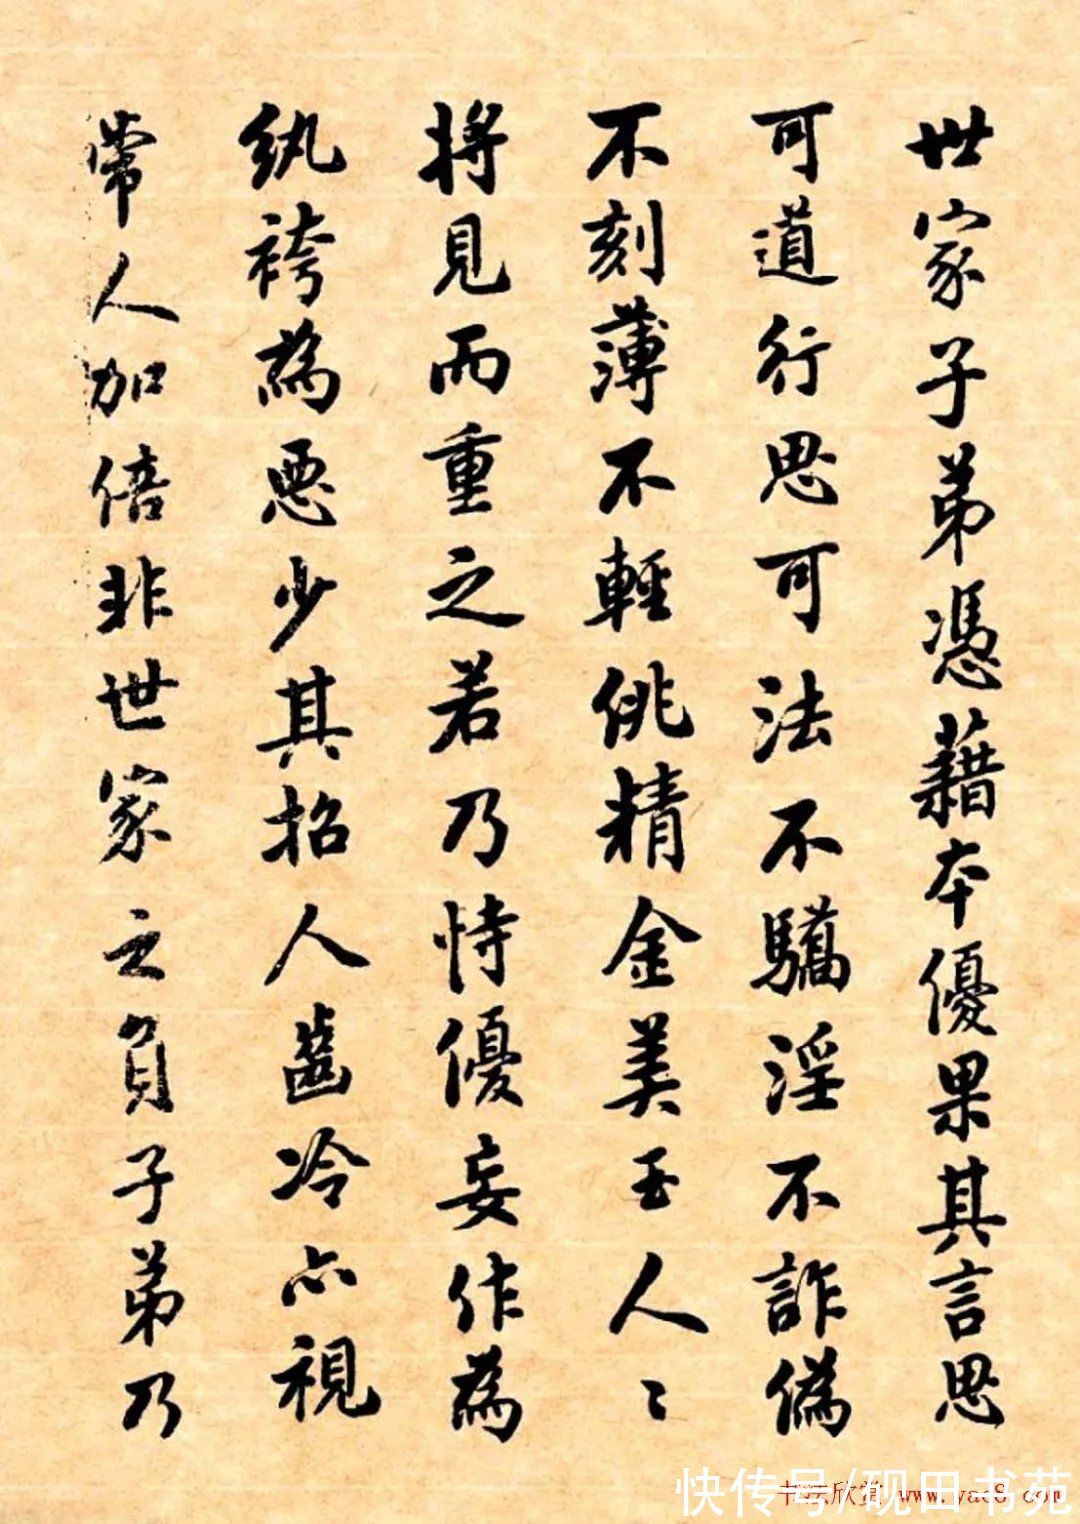 世家子弟憑藉本優果其言思
可道行思可法不驕淫不詐偽
不刻薄不輕佻精金美玉人〻
將見而重之若乃恃優妄作為
紈袴為惡少其招人齒冷亦視
常人加倍非世家之負子弟乃
书法欣赏 www.yac8.com
快传号/砚田书苑